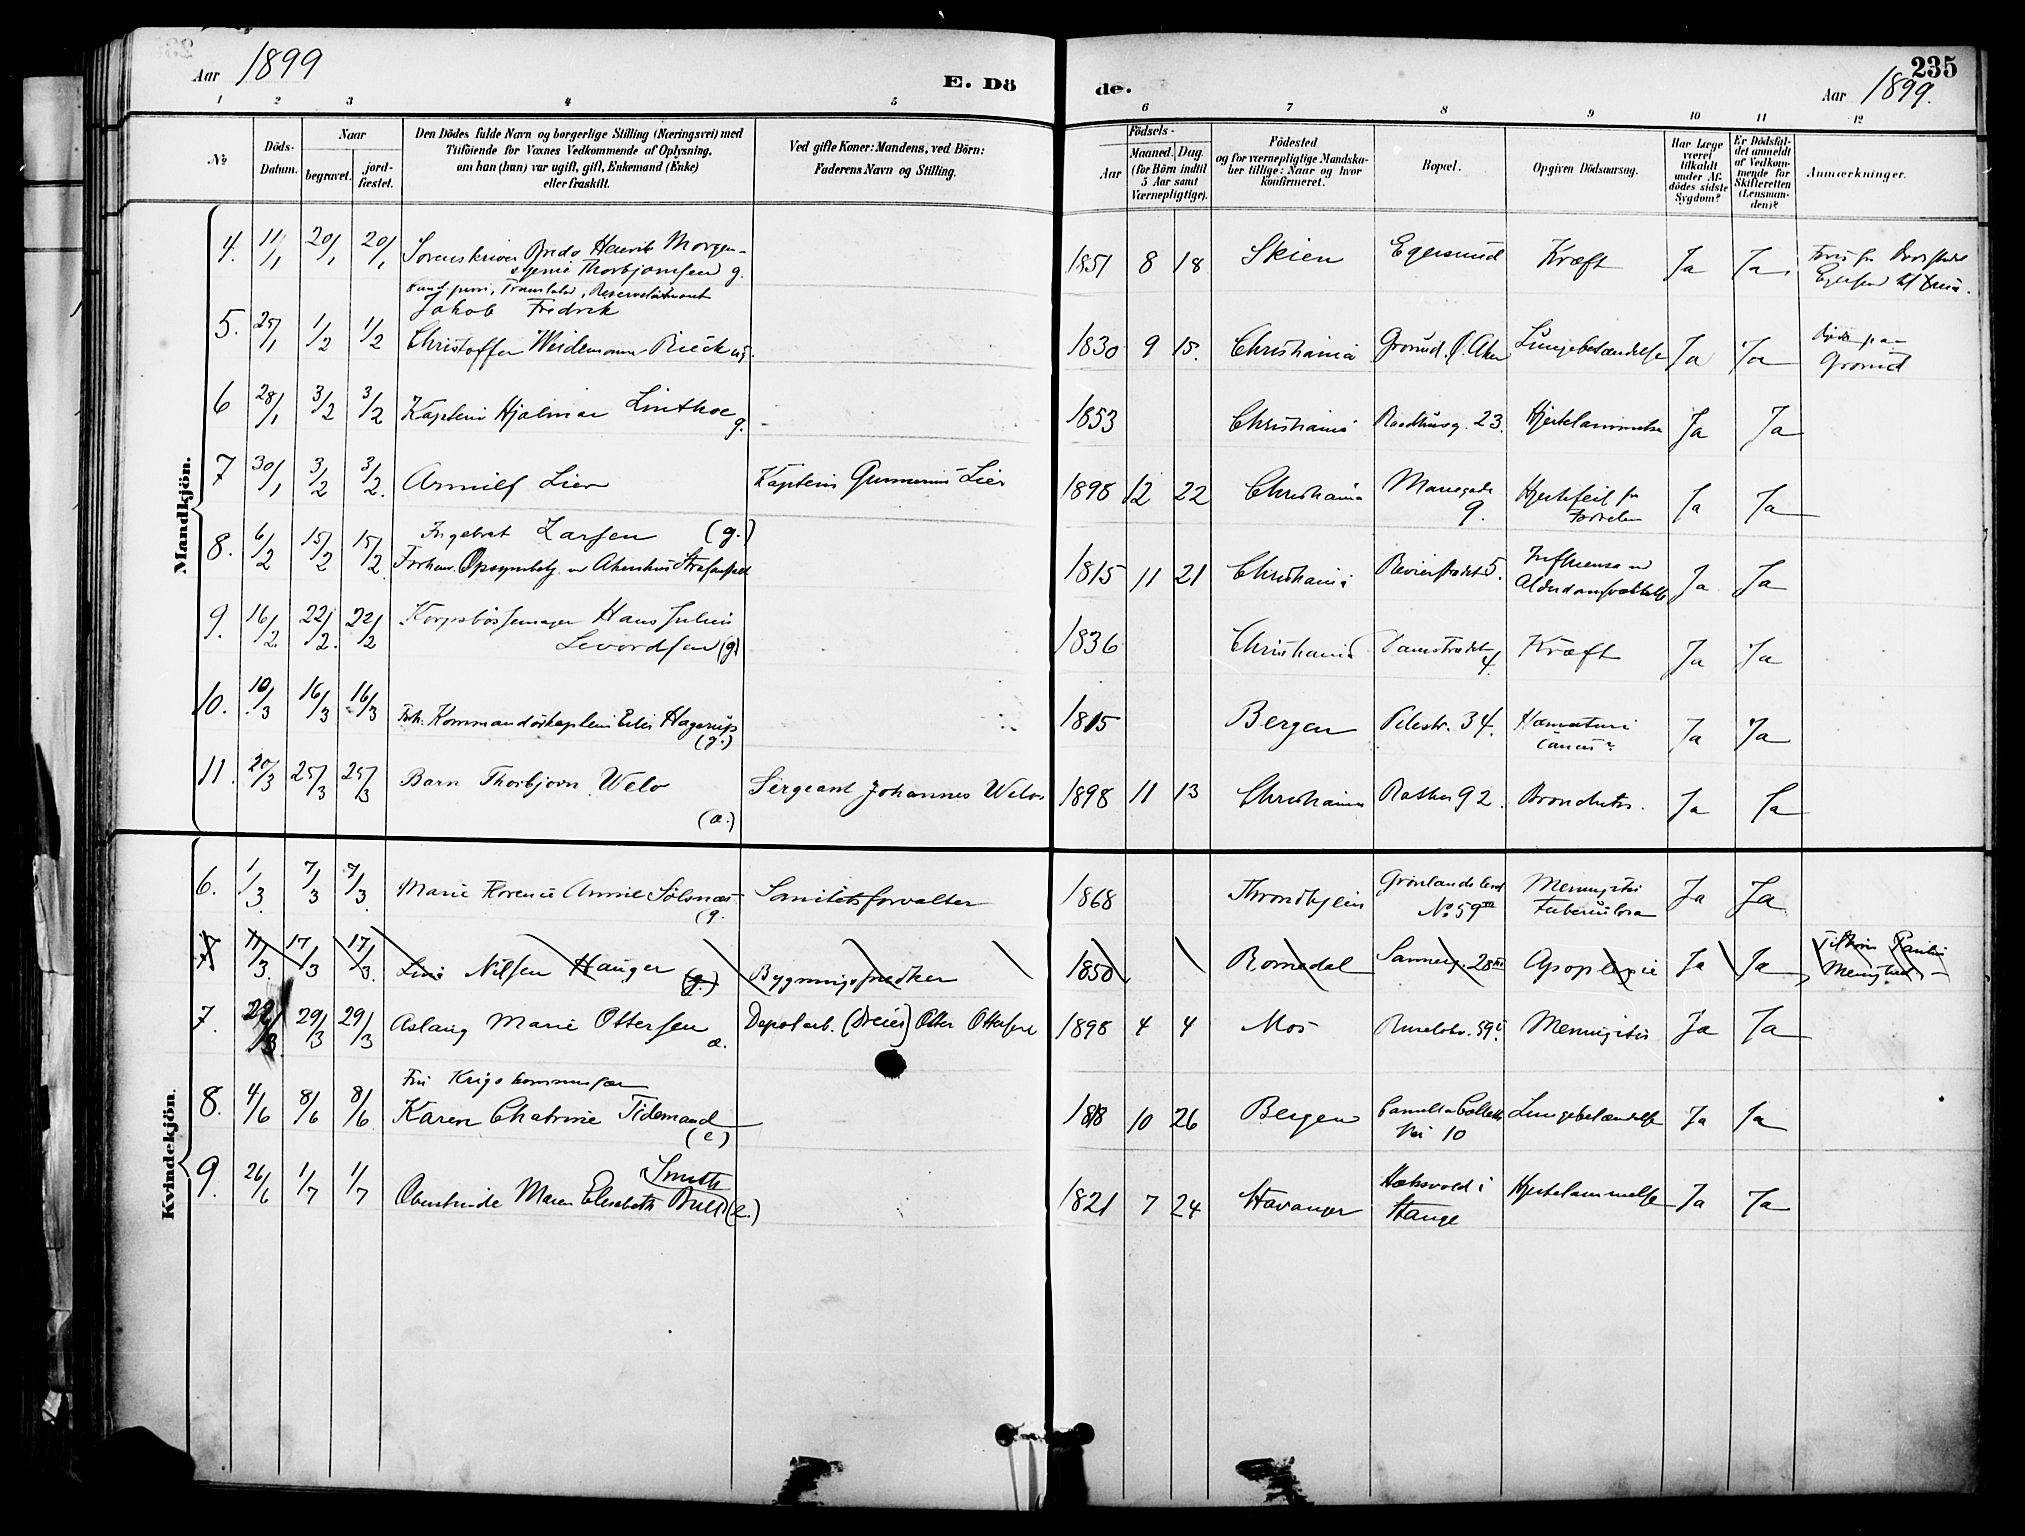 Aar 1899
E. Dö
de.
235
Aar 1899.
1 2 3 4 5 6 7 8 9 10 11 12
No
Döds-
Datum.
Naar
begravet.
jord-
fæstet.
Den Dödes fulde Navn og borgerlige Stilling (Næringsvei) med
Tilföiende for Voxnes Vedkommende af Oplysning,
om han (hun) var ugift, gift, Enkemand (Enke)
eller fraskilt.
Ved gifte Koner: Mandens, ved Börn:
Faderens Navn og Stilling.
Födsels-
Aar
Maaned. Dag.
(for Börn indtil
5 Aar samt
Værnepligtige).
Födested
og for værnepligtige Mandska-
ber tillige: Naar og hvor
konfirmeret.
Bopæl.
Opgiven Dödsaarsag.
Har Læge
været
tilkaldt
under Af-
dödes sidste
Sygdom?
Er Dödsfal-
det anmeldt
af Vedkom-
mende for
Skifteretten
(Lensman-
den)?
Anmærkninger.
Mandkjön.
4. 11/1 20/1 20/1 Sorenskriver Bredo Henrik Morgen-
stjerne Thorbjørnsen g.
1851 8 18 Skien Egersund Kræft Ja Ja.
Jakob Fredrik
5. 25/1 1/2 1/2 Christoffer Weidemann Rieck
1830 9 15. Christiania Grorud. Ø. Aker Lungebetændelse Ja Ja
Grorud
6 28/1 3/2 3/2 Kaptein Hjalmar Linthoe g.
1853 Christiania Raadhusg. 23. Hjertelammelse Ja Ja
7 30/1 3/2 3/2. Arnulf Lier Kaptein Gunnerius Lier
1898 12 22 Christiania Mariegade 9. Hjertefeil fra Fødselen Ja Ja
8. 6/2 15/2 15/2 Ingebret Larsen (g.)
1815 11 21 Christiania Revierstrædet 5. Influensa Ja Ja
9. 16/2. 22/2. 22/2 Korpsbøssemager Hans Julius
Levordsen (g)
1836 Christiania Damstrædet 4. Kræft Ja Ja
10. 10/3 16/3 16/3 Kommandørkaptein Eiler Hagerup
(g.)
1815 Bergen Pilestr. 34. Hæmaturi Ja Ja
11. 20/3 25/3 25/3 Barn Thorbjørn Welo Sergeant Johannes Welo
(a.)
1898 11 13 Christiania Rathkes 92. Bronchitis. Ja Ja
Kvindekjön.
6. 1/3. 7/3 7/3. Marie Florence Annie Sølsnæs Sanitetsforvalter
g.
1868 Throndhjem Grønlandsleret No 59 III Meningitis Tuberculosa Ja Ja
7 11/3. 17/3 17/3. Lina Nilsen Hauger (g.) Bygningssnedker
1850 Romedal Sannerg. 28 Apoplexie Ja Ja
7. 22/3 29/3 29/3 Aslaug Marie Ottersen a. Depotarb. (Dreier) Otter Ottersen
1898 4 4 Mos Meningitis Ja Ja
8. 4/6 8/6 8/6 Fru Krigskommissær
Karen Chatrine Tidemand
(e)
1818 10 26 Bergen Camilla Colletts Vei 10 Lungebetændelse Ja Ja
Smith
9. 26/6 1/7 1/7 Oberstinde Maren Elisabeth Bull (e.)
1821 7 24 Stavanger Stange Hjertelammelse Ja Ja